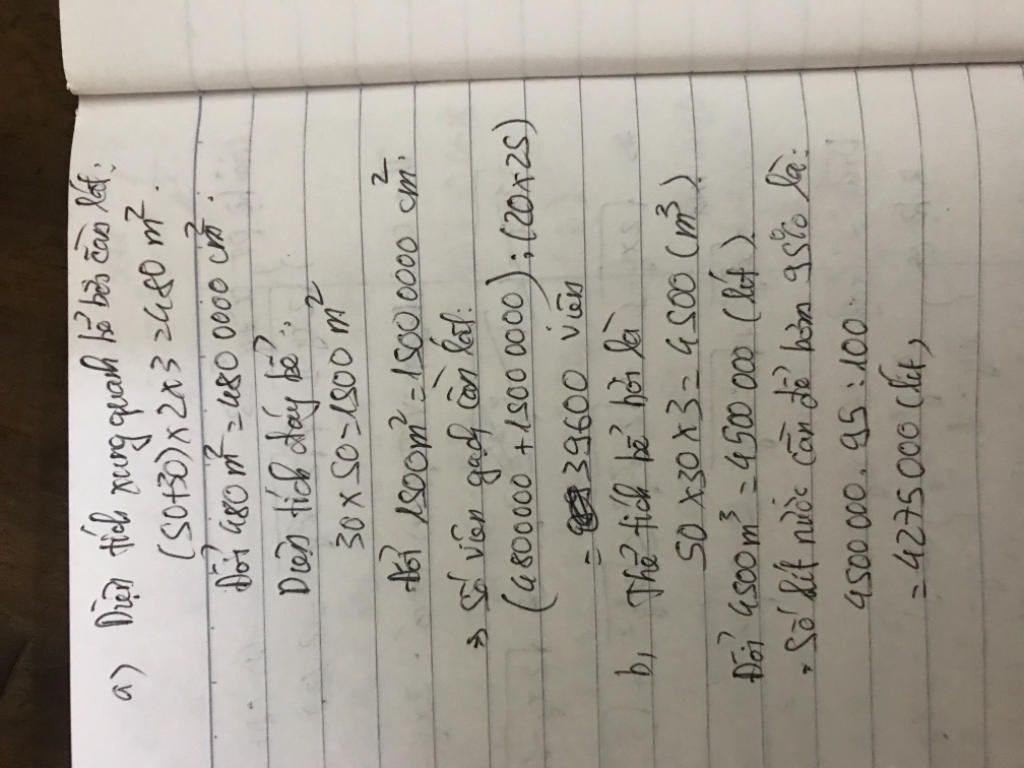 a) Diện tích xung quanh bể bơi cần lát:
(50+30)×2×3=480 m²
Đổi 480m²=480 0000 cm².
Diện tích đáy bể:
30×50=1500 m²
Đổi 1500m²=1500 0000 cm².
→ Số viên gạch cần lát:
(4800000+1500 0000):(20×25)
= 39600 viên
b, Thể tích bể bơi là
50×30×3=4500(m³)
Đổi 4500m³=4500 000 (lít)
Số lít nước cần để bơm 95% là:
4500 000.95:100
=4275 000(lít)